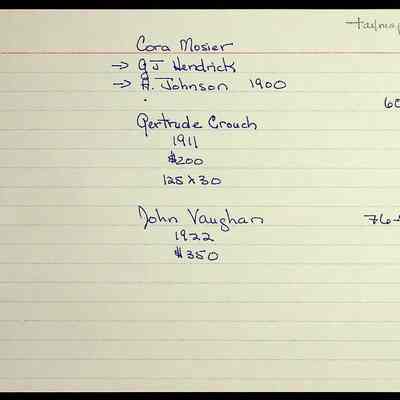 Cora Mosier
→ GJ Hendrick
→ A. Johnson 1900
60
Gertrude Crouch
1911
$200
125 x 30
John Vaughan 76-
1922
$350